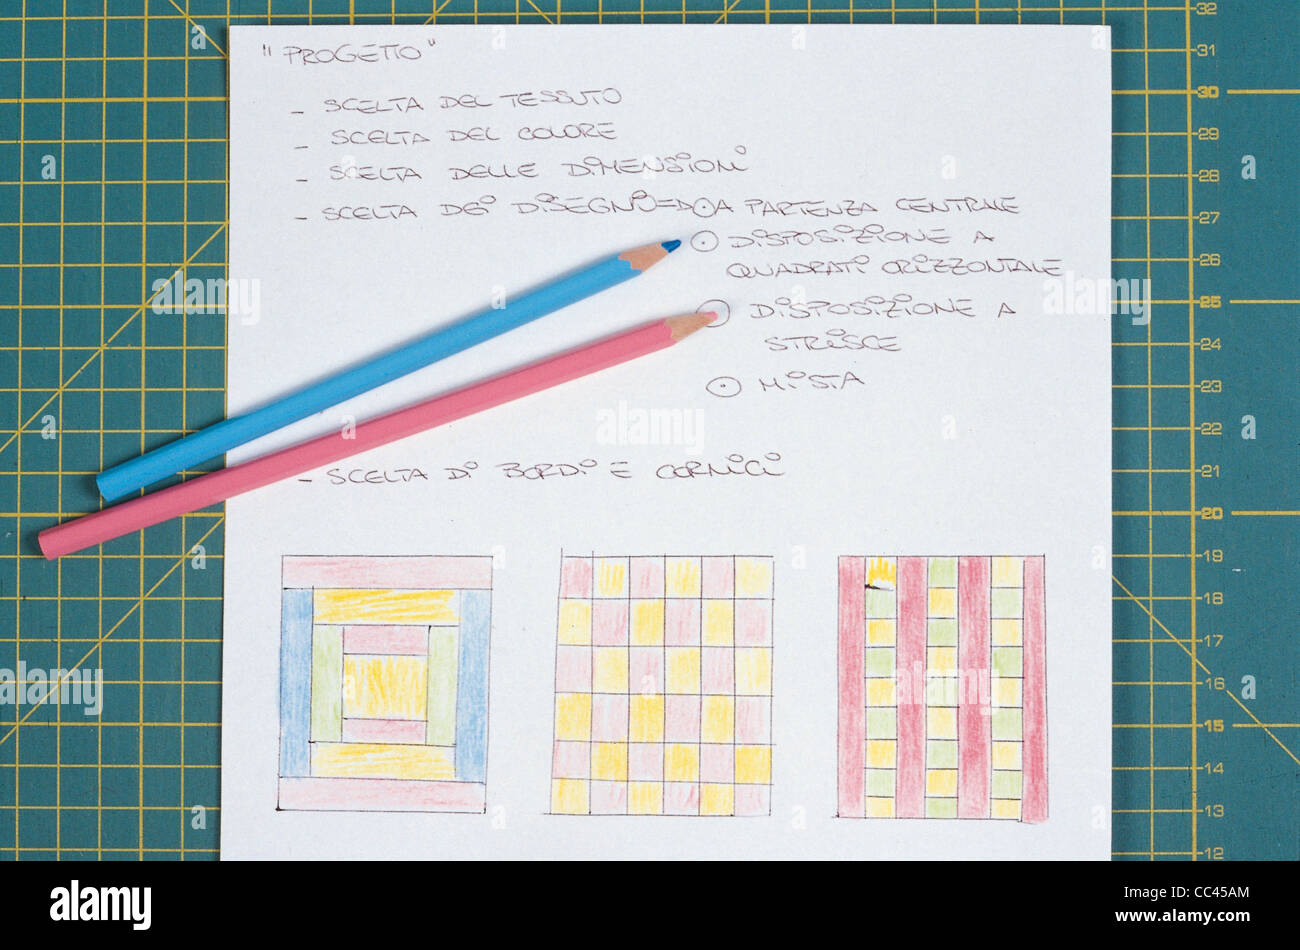 "PROGETTO"
- SCELTA DEL TESSUTO
- SCELTA DEL COLORE
- SCELTA DELLE DIMENSIONI
- SCELTA DEI DISEGNI=D⊙A PARTENZA CENTRALE
⊙ DISPOSIZIONE A
QUADRATI ORIZZONTALE
DISPOSIZIONE A
STRISCE
⊙ MISTA
- SCELTA DI BORDI E CORNICI
32
31
30
29
28
27
26
25
24
23
22
21
20
19
18
17
16
15
14
13
12
alamy
alamy
Image ID: CC45AM
www.alamy.com